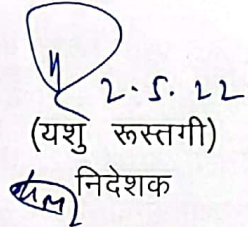 2.5.22
(यशु रूस्तगी)
निदेशक